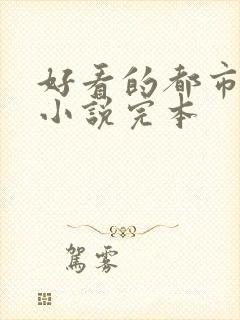 好看的都市
小说完本
駕霧